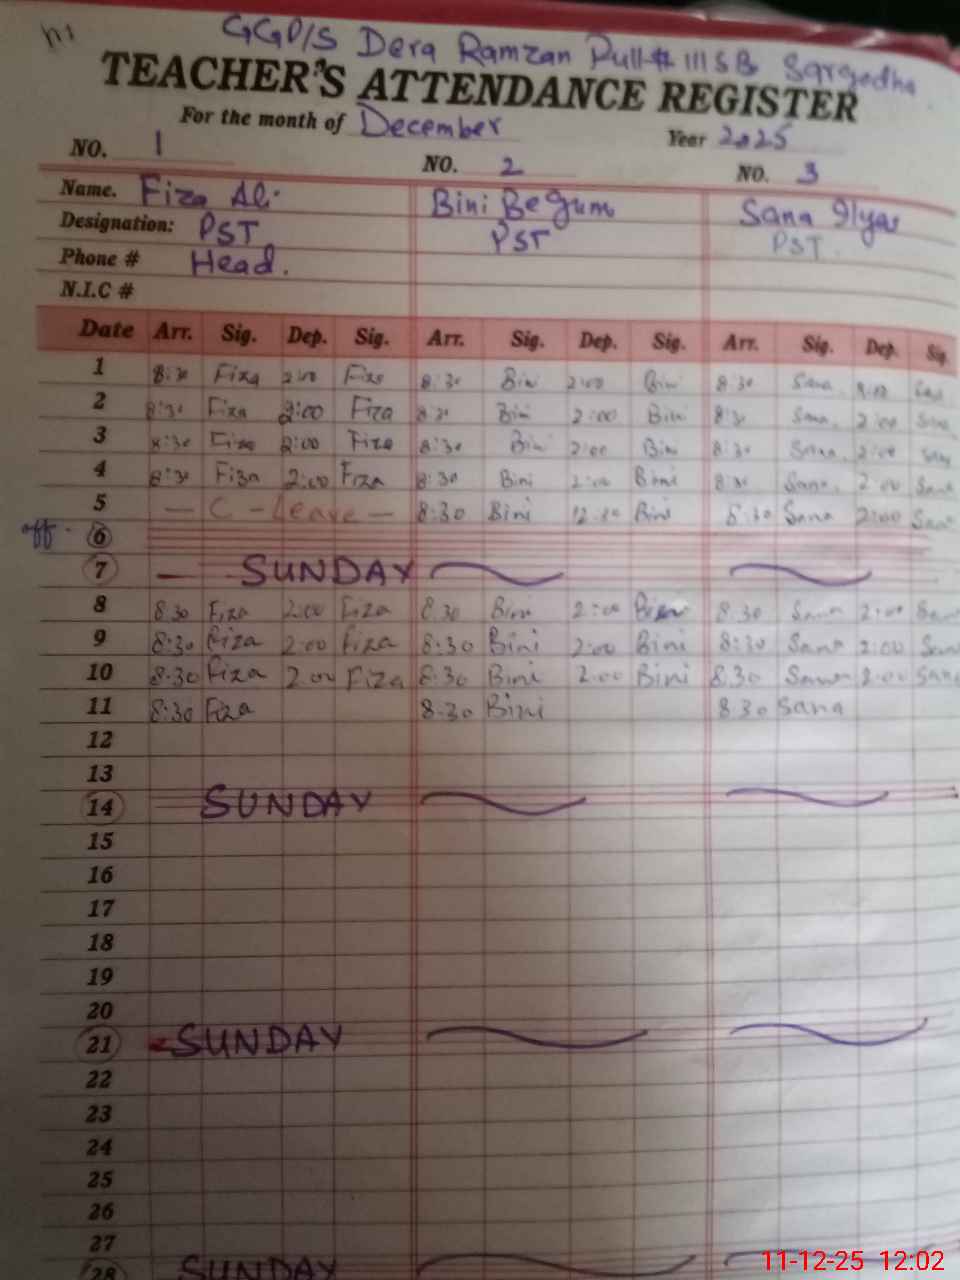 GGP/S Dera Ramzan Pull # 111 SB Sargodha
TEACHER'S ATTENDANCE REGISTER
For the month of December Year 2025
NO. 1 NO. 2 NO. 3
Name. Fiza Ali Bini Begum Sana Ilyas
Designation: PST PST PST
Phone # Head.
N.I.C #
Date Arr. Sig. Dep. Sig. Arr. Sig. Dep. Sig. Arr. Sig. Dep. Sig.
1 8:30 Fiza 2:00 Fiza 8:30 Bini 2:00 Bini 8:30 Sana
2 8:30 Fiza 2:00 Fiza 8:30 Bini 2:00 Bini 8:30 Sana 2:00 Sana
3 8:30 Fiza 2:00 Fiza 8:30 Bini 2:00 Bini 8:30 Sana 2:00 Sana
4 8:30 Fiza 2:00 Fiza 8:30 Bini 2:00 Bini 8:30 Sana 2:00 Sana
5 — C - Leave — 8:30 Bini 12:30 Bini 8:30 Sana 2:00 Sana
off. 6
7 — SUNDAY
8 8:30 Fiza 2:00 Fiza 8:30 Bini 2:00 Bini 8:30 Sana 2:00 Sana
9 8:30 Fiza 2:00 Fiza 8:30 Bini 2:00 Bini 8:30 Sana 2:00 Sana
10 8:30 Fiza 2:00 Fiza 8:30 Bini 2:00 Bini 8:30 Sana 2:00 Sana
11 8:30 Fiza 8:30 Bini 8:30 Sana
12
13
14 SUNDAY
15
16
17
18
19
20
21 SUNDAY
22
23
24
25
26
27
28 SUNDAY
11-12-25 12:02